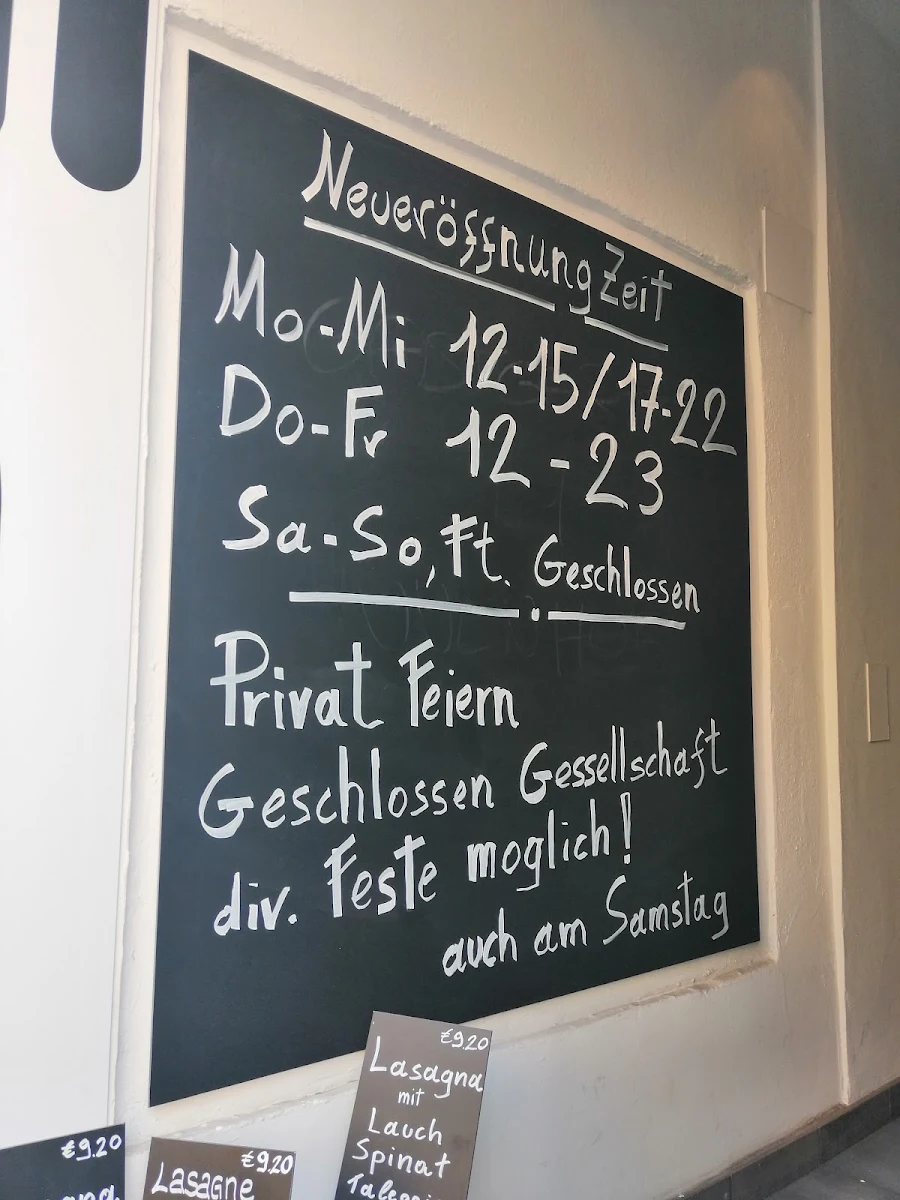 Neueröffnung Zeit
Mo-Mi 12-15/17-22
Do-Fr 12-23
Sa-So, Ft. Geschlossen
Privat Feiern
Geschlossen Gessellschaft
div. Feste moglich!
auch am Samstag
€9.20
Lasagna
mit
Lauch
Spinat
€9.20
€9.20
LASAGNE